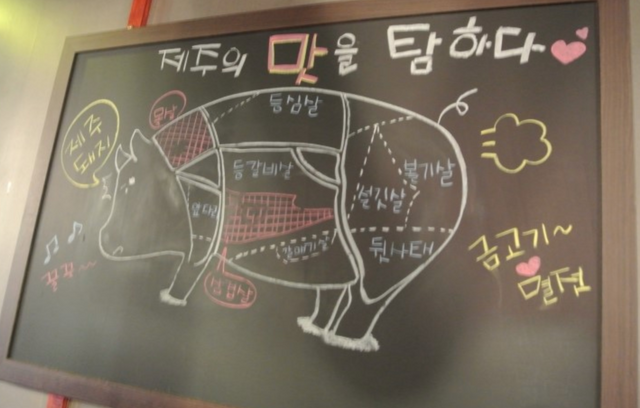 제주의 맛을 탐하다
제주
돼지
목살
등심살
등갈비살
볼기살
설깃살
앞다리
갈매기살
뒷사태
삼겹살
꿀꿀~~
금고기~
멸젓